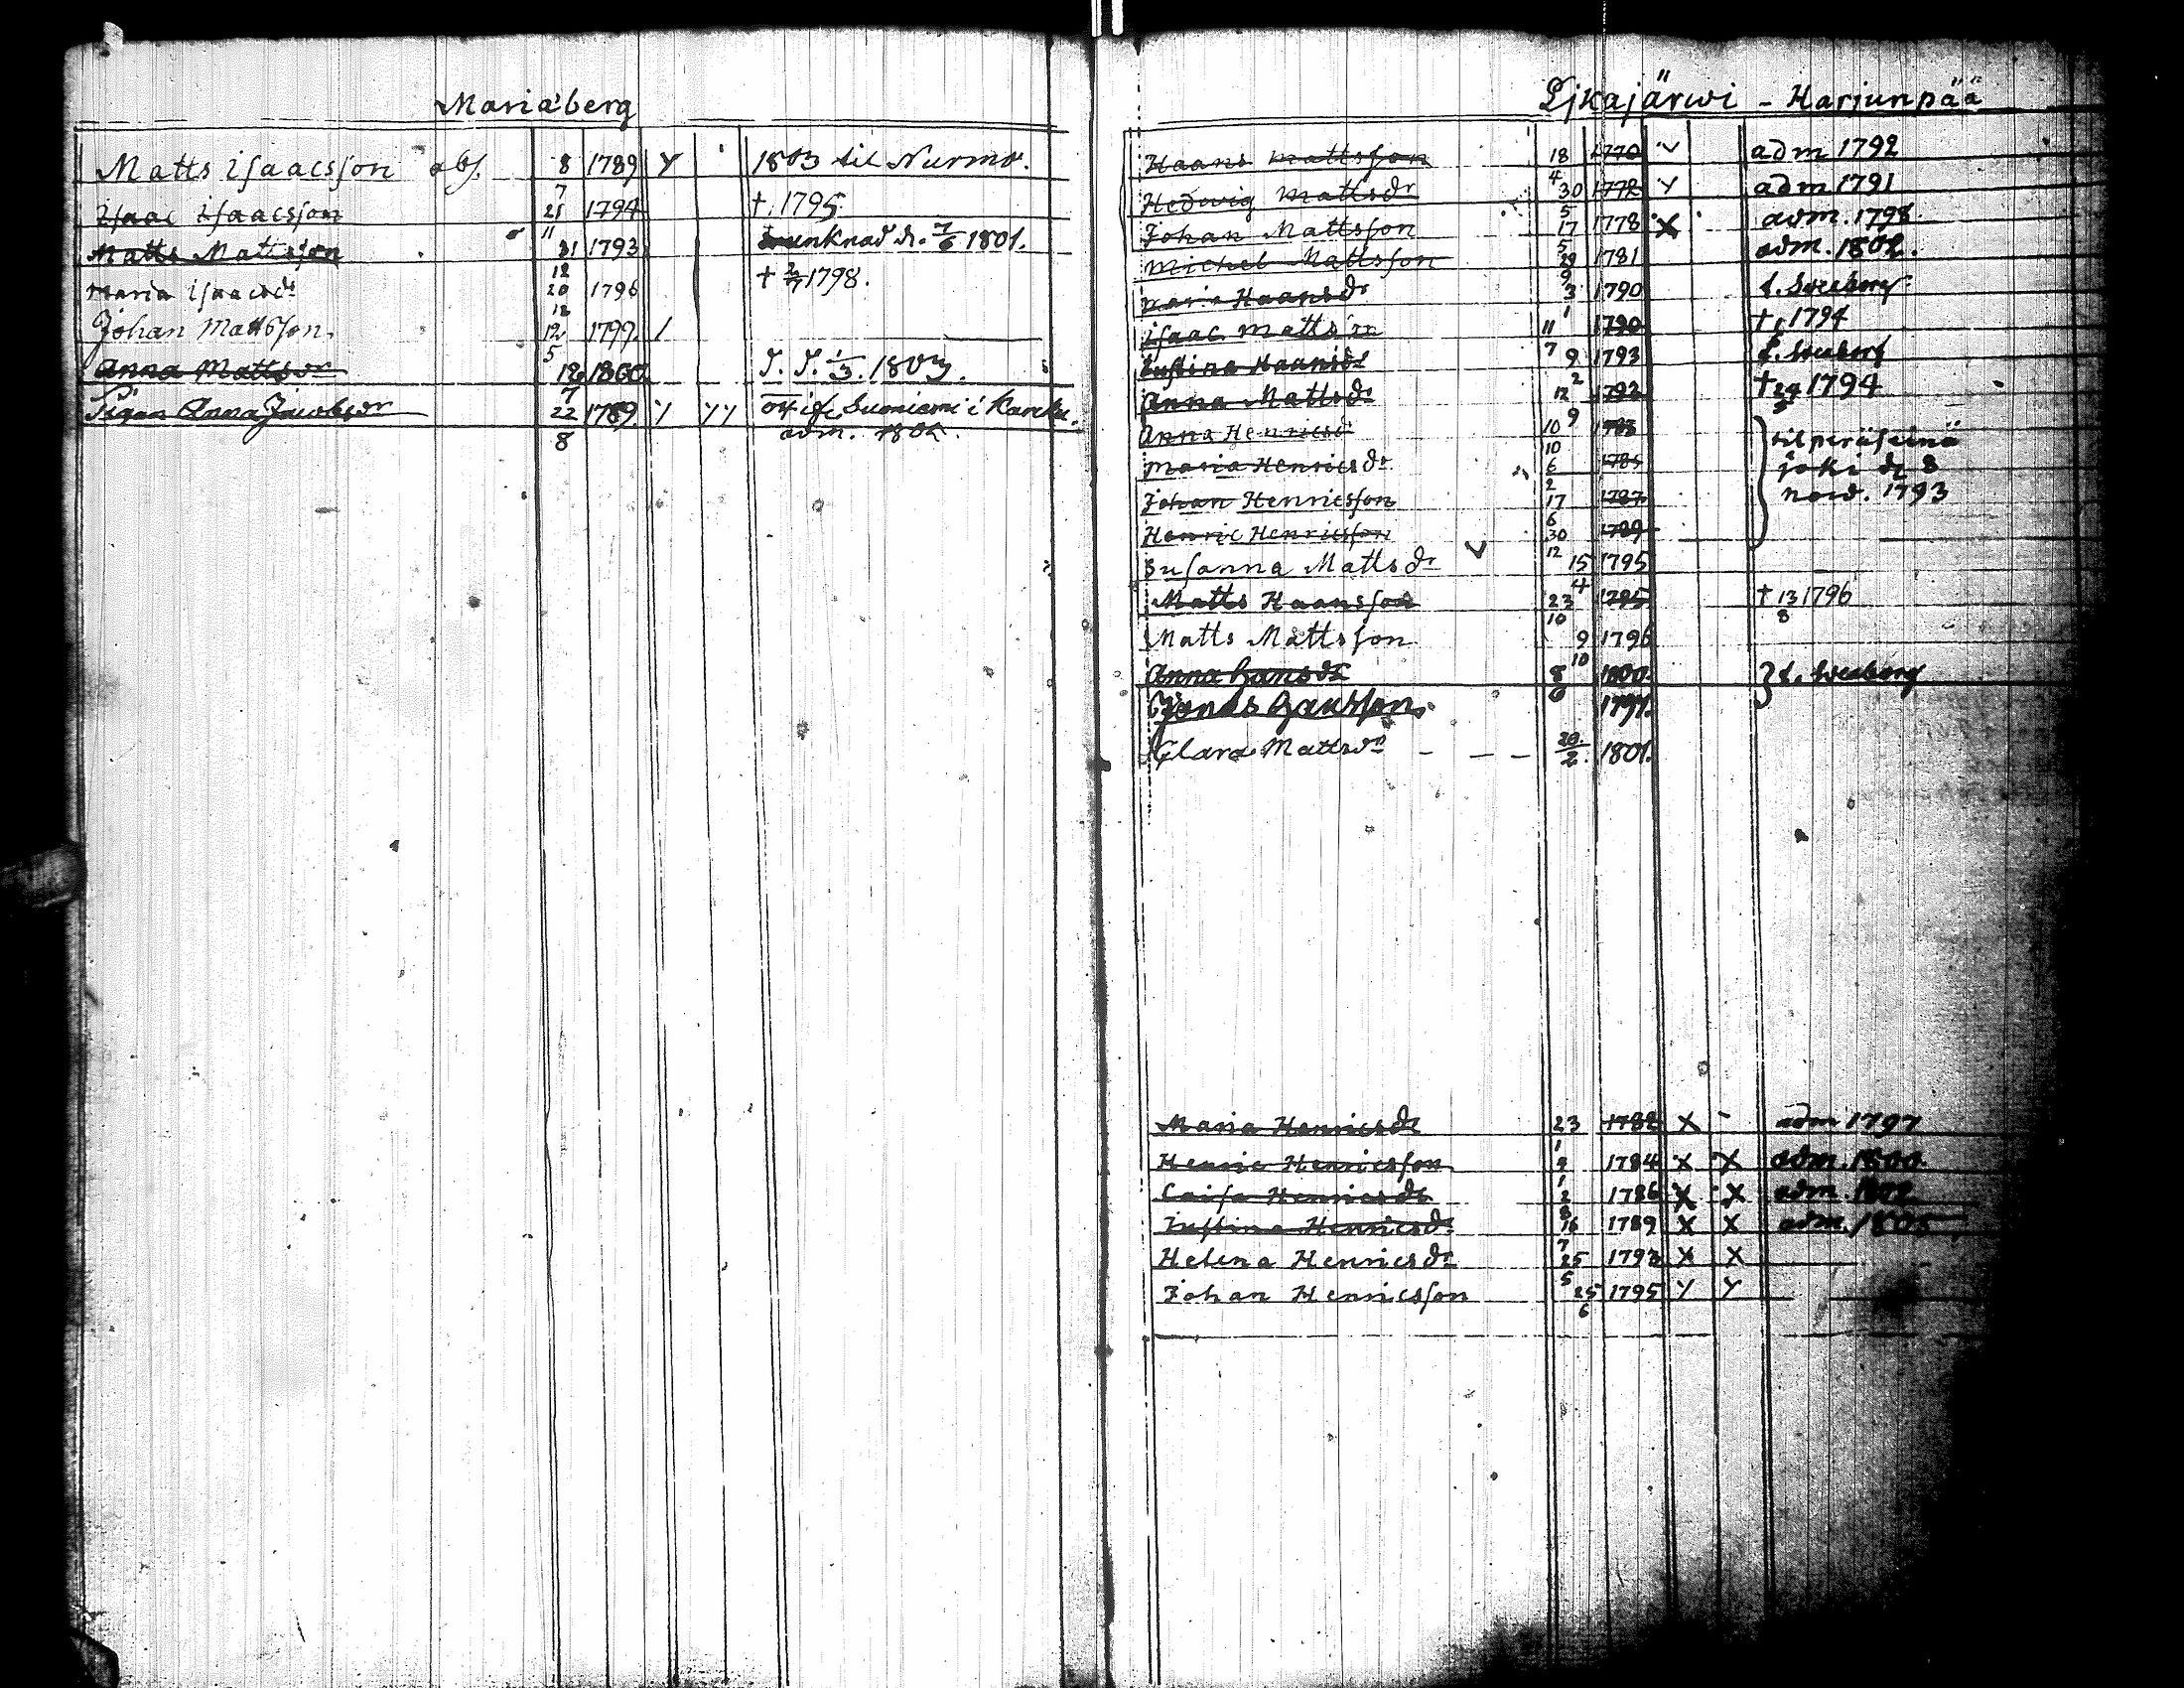 Mariæberg
Matts Isaacsson abs. 8 1789 Y 1803 til Nurmo.
7
Isaac Isaacsson 21 1794 † 1795
11
Matts Mattsson 31 1793 drunknad d. 7/6 1801.
12
Maria Isaacsdr 20 1796 † 2/7 1798.
12
Johan Mattsson 12 1799 /
5
Anna Mattsdr 12 1800 1/3 1803.
7
Pigan Anna Jacobsdr 22 1789 Y YY Suoniemi i Karcku.
8 adm. 1802.
Lijkajärwi - Harjunpää
Haans Mattsson 18 1770 adm 1792
4
Hedwig Mattsdr 30 1772 Y adm 1791
5
Johan Mattsson 17 1778 X adm. 1798
5
Michel Mattsson 29 1781 adm. 1802.
9
Maria Haansdr 3 1790 t. Sveaborg
1
Isaac Mattsson 11 1790 † 1794
7
Justina Haansdr 9 1793 t. Sveaborg
2
Anna Mattsdr 12 1792 † 24 1794
9 5
Anna Henricsdr 10 1783 til peräseinä
10
Maria Henricsdr 6 1785 joki d. 8
2
Johan Henricsson 17 1787 nov. 1793
6
Henric Henricsson 30 1789
12
Susanna Mattsdr V 15 1795
4
Matts Haansson 23 1795 † 13 1796
10 8
Matts Mattsson 9 1796
10
Anna Hansdr 8 1800 t. Sveaborg
6
Jonas Hansson 1797.
Clara Mattsdr - - - 20/2 1801.
Maria Henricsdr 23 1782 X - adm 1797
1
Henric Henricsson 9 1784 X X adm. 1800
1
Caisa Henricsdr 2 1786 X X adm. 1802
8
Justina Henricsdr 16 1789 X X adm. 1805
7
Helena Henricsdr 25 1792 X X
5
Johan Henricsson 25 1795 Y Y
6